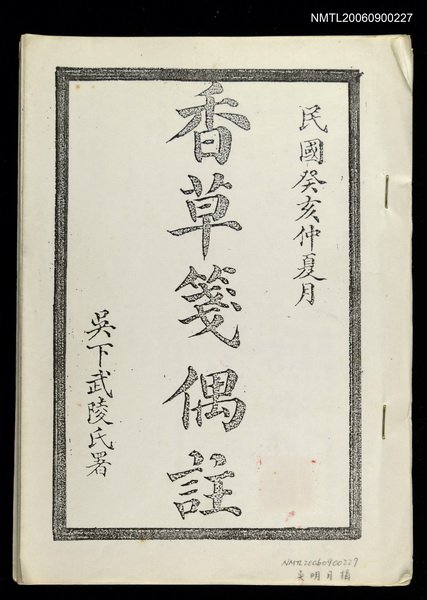 NMTL20060900227
民國癸亥仲夏月
香草箋偶註
吳下武陵氏署
NMTL20060900227
吳明月捐